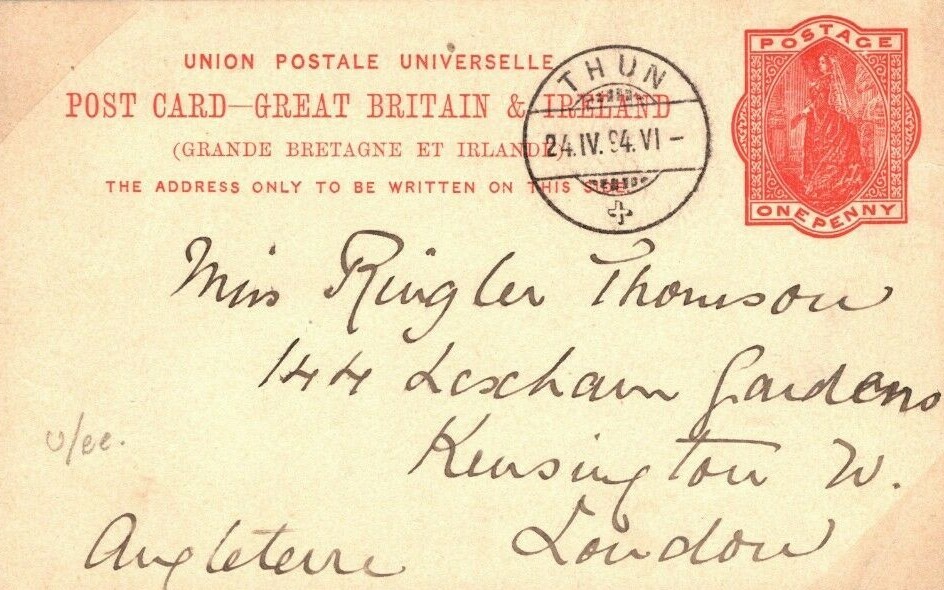 UNION POSTALE UNIVERSELLE
POST CARD—GREAT BRITAIN & IRELAND
(GRANDE BRETAGNE ET IRLANDE)
THE ADDRESS ONLY TO BE WRITTEN ON THIS SIDE
THUN
24.IV.94.VI–
POSTAGE
ONE PENNY
Miss Ringler Thomson
144 Lexham Gardens
Kensington W.
London
Angleterre